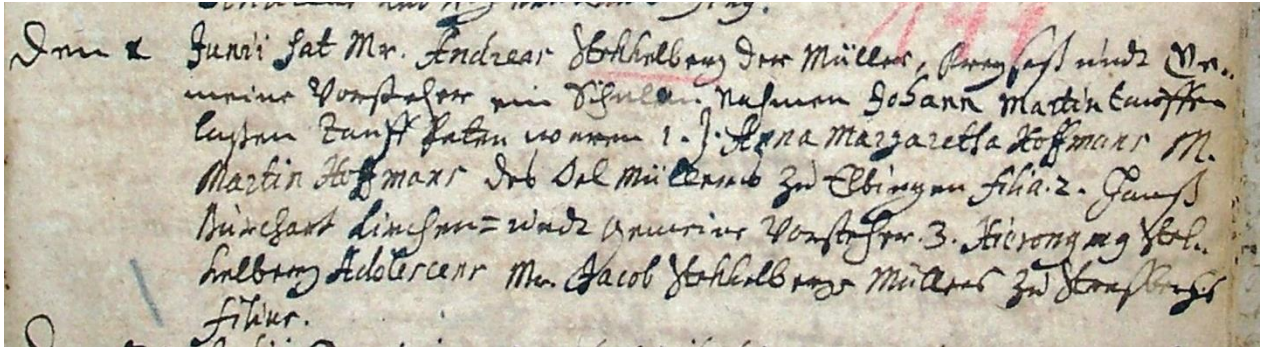 Den Junii hat Mr. Andreas Stekhelberg der Müller, undt Ge-
meine Vorsteher ein Nahmen Johann Martin tauffen
laßen Tauff Paten waren 1. J. Anna Margaretha Hoffmans M.
Martin Hoffmans des Oel Müllers zu Elbingen filia. 2. Hanß
Burchart Kirchen= undt gemeine Vorsteher. 3. Hieronymus Stek-
helberg Adolescens Mr. Jacob Stekhelbergs Müllers zu Straßbergs
filius.